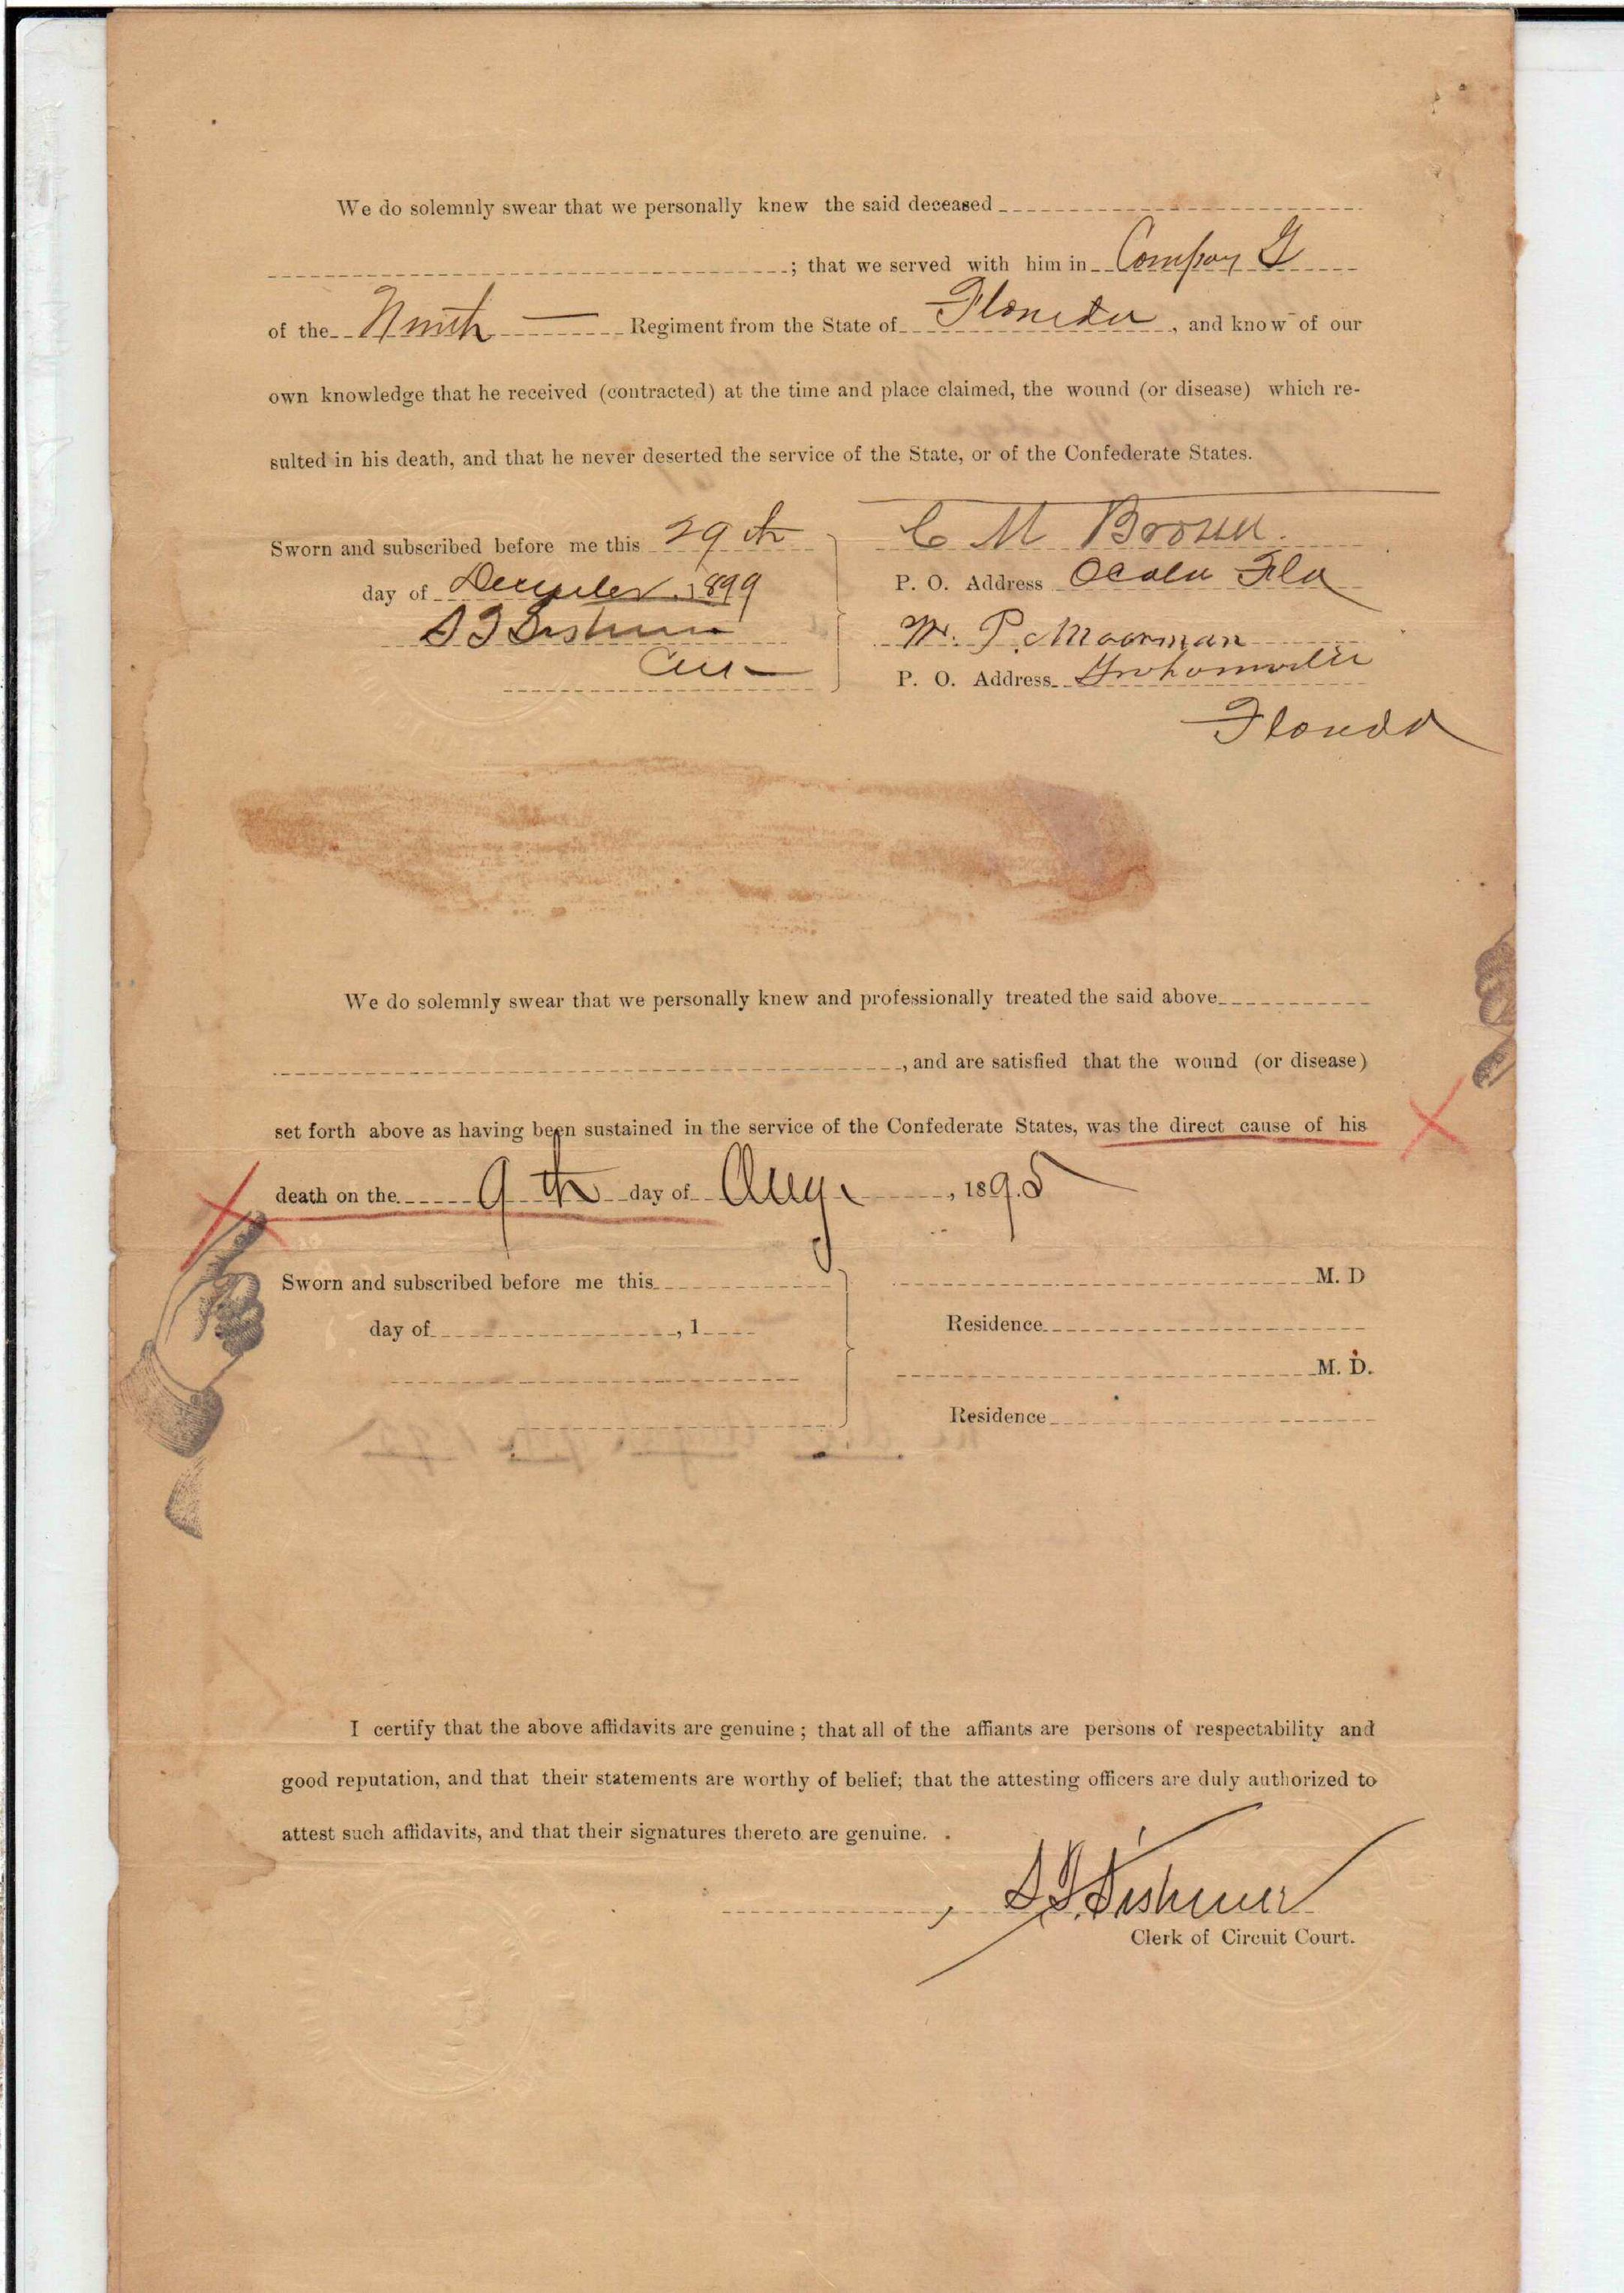 We do solemnly swear that we personally knew the said deceased
; that we served with him in Company G
of the Ninth Regiment from the State of Florida, and know of our
own knowledge that he received (contracted) at the time and place claimed, the wound (or disease) which re-
sulted in his death, and that he never deserted the service of the State, or of the Confederate States.
Sworn and subscribed before me this 29th
C M Brown
day of December 1899
P. O. Address Ocala Fla
W. P. Moorman
P. O. Address Grahamville
Florida
We do solemnly swear that we personally knew and professionally treated the said above
, and are satisfied that the wound (or disease)
set forth above as having been sustained in the service of the Confederate States, was the direct cause of his
death on the 9th day of Aug. , 1895
Sworn and subscribed before me this
M. D
day of , 1
Residence
M. D.
Residence
I certify that the above affidavits are genuine; that all of the affiants are persons of respectability and
good reputation, and that their statements are worthy of belief; that the attesting officers are duly authorized to
attest such affidavits, and that their signatures thereto are genuine.
Clerk of Circuit Court.